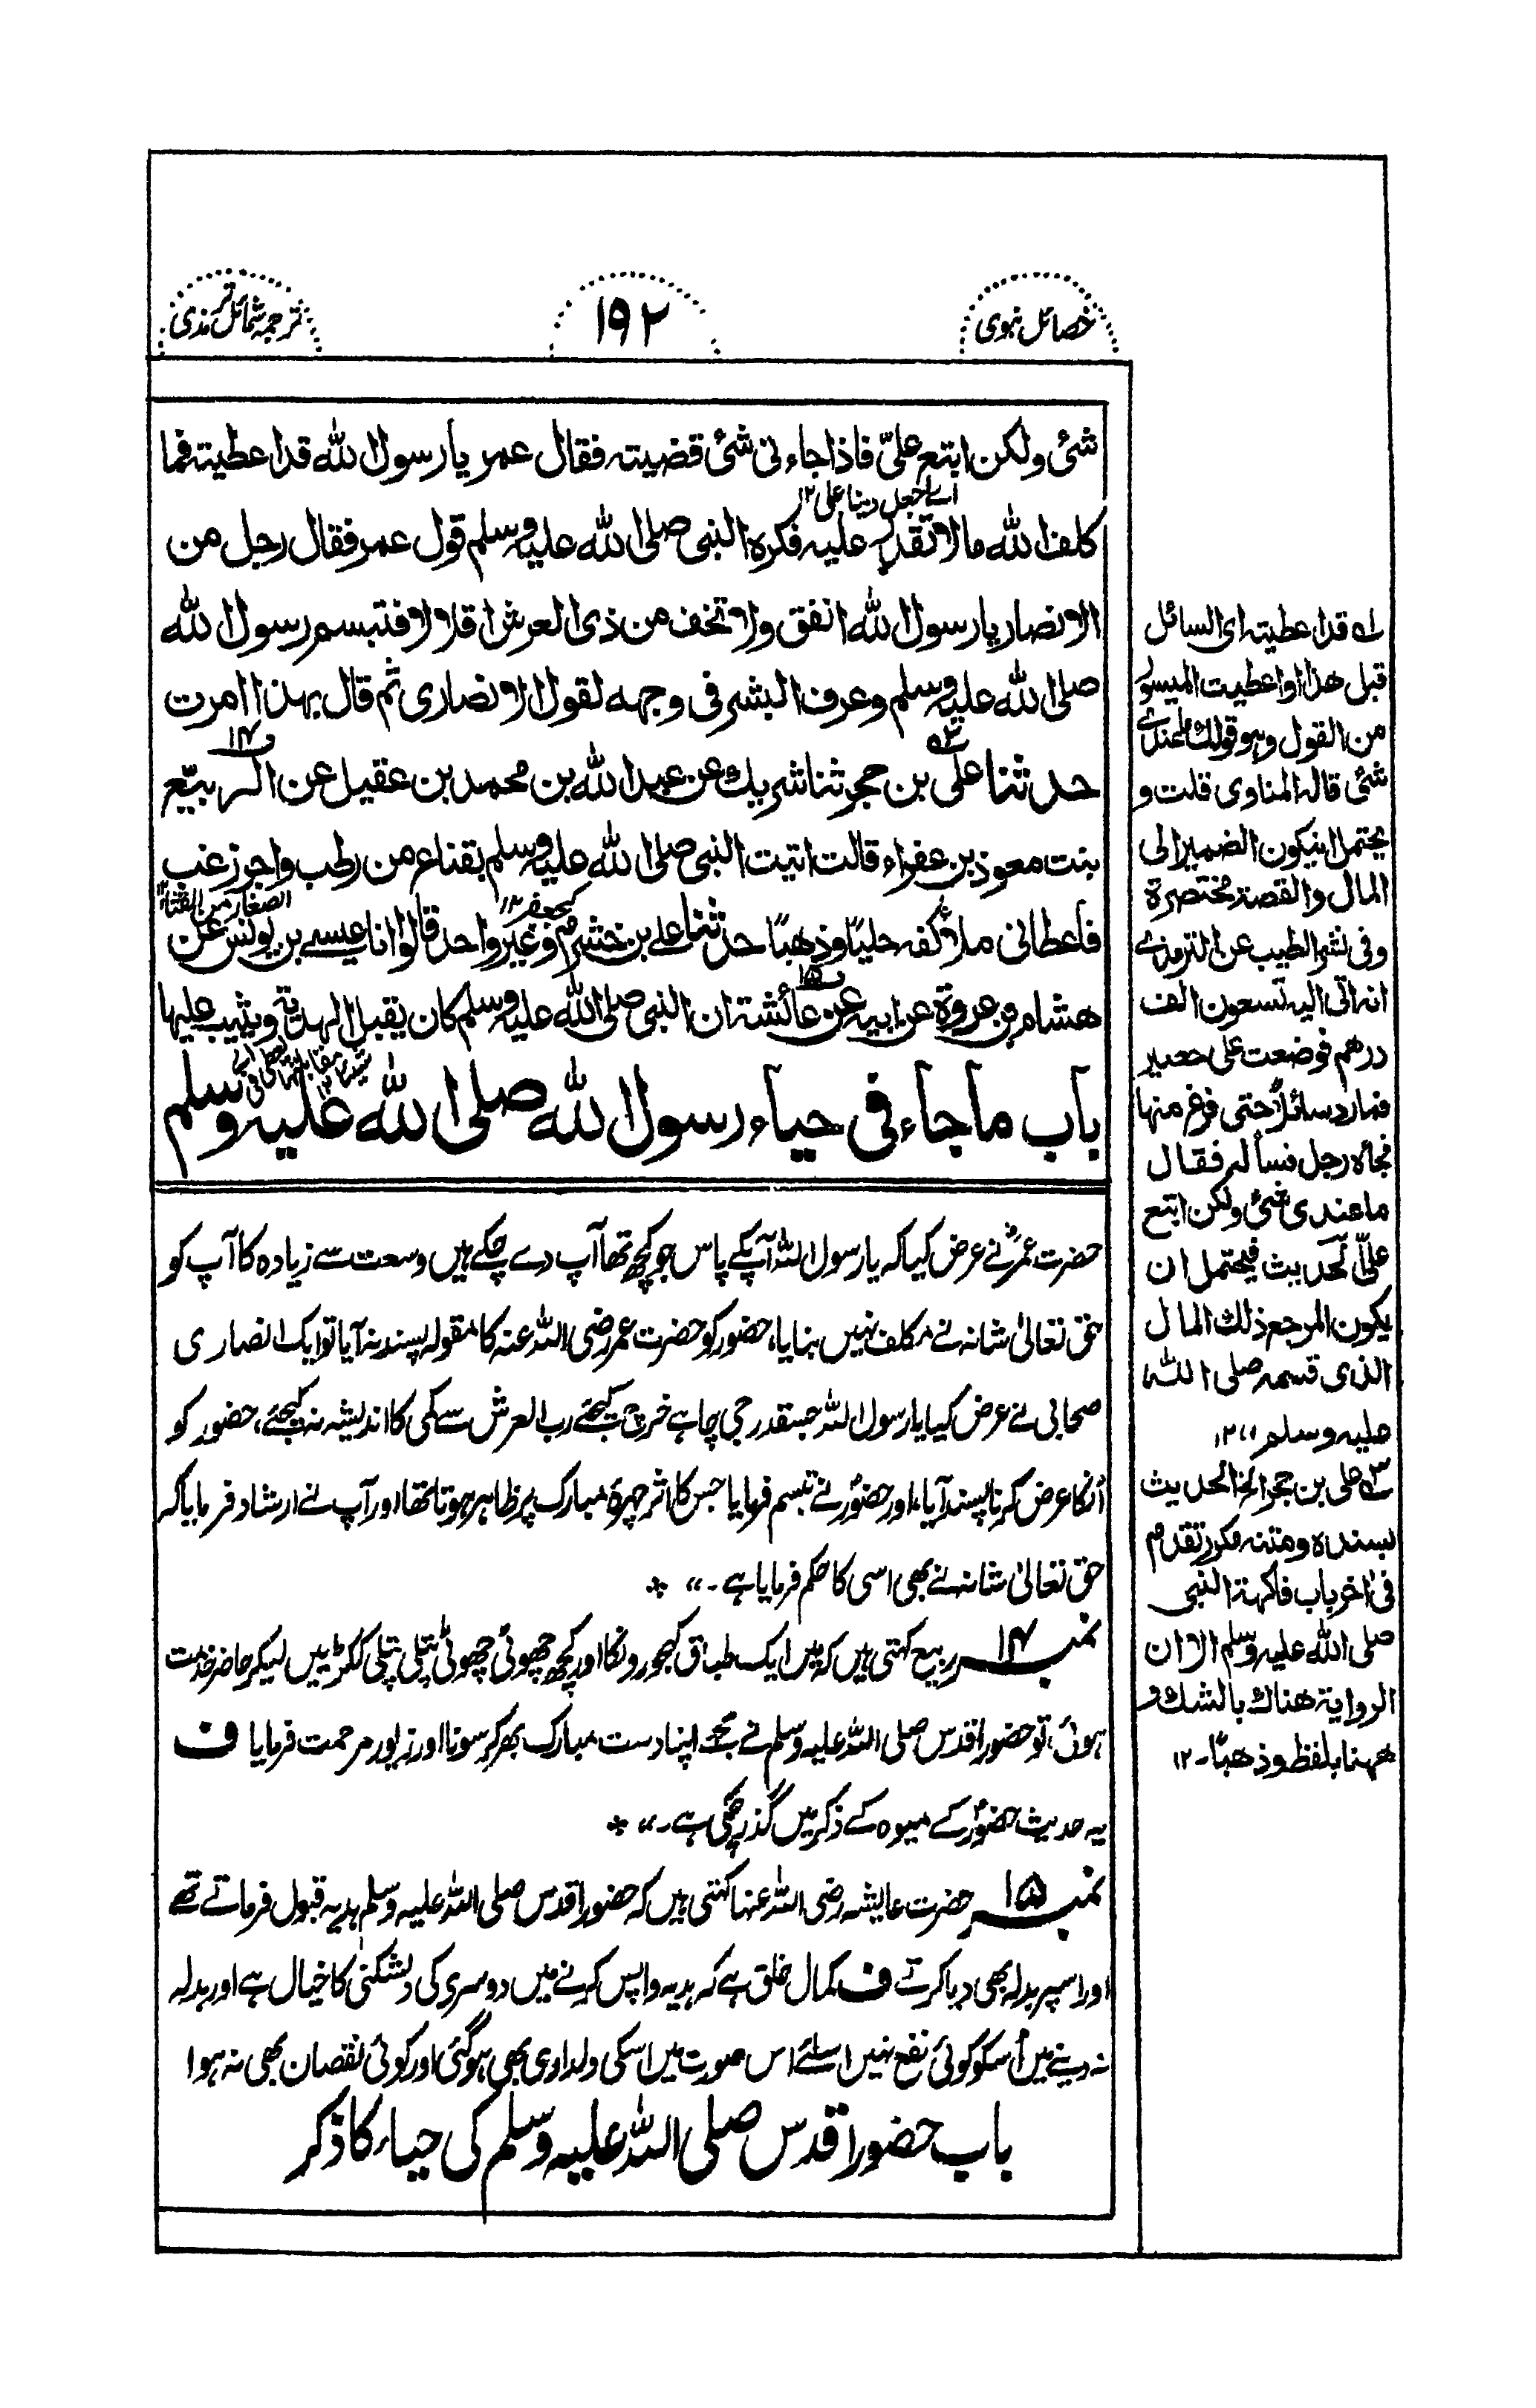 خصائل نبوی
۱۹۲
ترجمہ شمائل ترمذی
شئ ولکن ابتع علیّ فاذا جاءنی شئ قضیتہ فقال عمر یا رسول اللہ قد اعطیتہ فما
اے اجعل دینا علی ۱۲
کلف اللہ مالا تقدر علیہ فکرہ النبی صلی اللہ علیہ وسلم قول عمر فقال رجل من
الانصار یا رسول اللہ انفق ولا تخف من ذی العرش اقلالا فتبسم رسول اللہ
صلی اللہ علیہ وسلم وعرف البشر فی وجہہ لقول الانصاری ثم قال بہذا امرت
حدثنا علی بن حجر ثنا شریک عن عبد اللہ بن محمد بن عقیل عن الربیّع
بنت معوذ بن عفراء قالت اتیت النبی صلی اللہ علیہ وسلم بقناع من رطب واجر زغب
کجعفر ۱۲
الصغار من القثاء ۱۲
فاعطانی ملأ کفہ حلیًا وذھبًا حدثنا علی بن خشرم وغیر واحد قالوا انا عیسے بن یونس عن
ھشام بن عروۃ عن ابیہ عن عائشۃ ان النبی صلی اللہ علیہ وسلم کان یقبل الہدیۃ ویثیب علیہا
باب ماجاء فی حیاء رسول اللہ صلی اللہ علیہ وسلم
حضرت عمرؓ نے عرض کیا کہ یا رسول اللہ آپکے پاس جو کچھ تھا آپ دے چکے ہیں وسعت سے زیادہ کا آپ کو
حق تعالیٰ شانہ نے مکلف نہیں بنایا، حضور کو حضرت عمر رضی اللہ عنہ کا مقولہ پسند نہ آیا تو ایک انصاری
صحابی نے عرض کیا یا رسول اللہ جسقدر جی چاہے خرچ کیجئے رب العرش سے کمی کا اندیشہ نہ کیجئے، حضور کو
اُنکا عرض کرنا پسند آیا، اور حضورؐ نے تبسم فرمایا جس کا اثر چہرۂ مبارک پر ظاہر ہوتا تھا اور آپ نے ارشاد فرمایا کہ
حق تعالیٰ شانہ نے بھی اسی کا حکم فرمایا ہے۔ ،، *
نمبر ۱۴ ربیع کہتی ہیں کہ میں ایک طباق کھجورونکا اور کچھ چھوٹی چھوٹی پتلی پتلی ککڑیں لیکر حاضر خدمت
ہوئی، تو حضور اقدس صلی اللہ علیہ وسلم نے مجھے اپنا دست مبارک بھر کر سونا اور زیور مرحمت فرمایا ف
یہ حدیث حضورؐ کے میوہ کے ذکر میں گذر چکی ہے۔ ،، *
نمبر ۱۵ حضرت عایشہ رضی اللہ عنہا کہتی ہیں کہ حضور اقدس صلی اللہ علیہ وسلم ہدیہ قبول فرماتے تھے
اور اسپر بدلہ بھی دیا کرتے ف کمال خلق ہے کہ ہدیہ واپس کرنے میں دوسری کی دلشکنی کا خیال ہے اور بدلہ
نہ دینے میں اُسکو کوئی نفع نہیں اسلئے اس صورت میں اسکی دلداوی بھی ہو گئی اور کوئی نقصان بھی نہ ہوا
باب حضور اقدس صلی اللہ علیہ وسلم کی حیاء کا ذکر
لہ قد اعطیتہ ای السائل
قبل ھذا او اعطیت المیسور
من القول وہو قولک ما عندی
شئ قالہ المناوی قلت و
یحتمل ان یکون الضمیر الی
المال والقصۃ مختصرۃ
وفی نشر الطیب عن الترمذے
انہ اتی الیہ تسعون الف
درھم فوضعت علی حصیر
فما رد سائلاً حتی فرغ منہا
فجاءہ رجل فسألہ فقال
ما عندی شئ ولکن ابتع
علیّ الحدیث فیحتمل ان
یکون المرجع ذلک المال
الذی قسمہ صلی اللہ
علیہ وسلم ،، ۱۲
علی بن حجر الخ الحدیث
بسندہ ومتنہ مکرر تقدم
فی اخر باب فاکہۃ النبی
صلی اللہ علیہ وسلم الا ان
الروایۃ ھناک بالشک و
ھہنا بلفظ وذھبًا۔ ۱۲